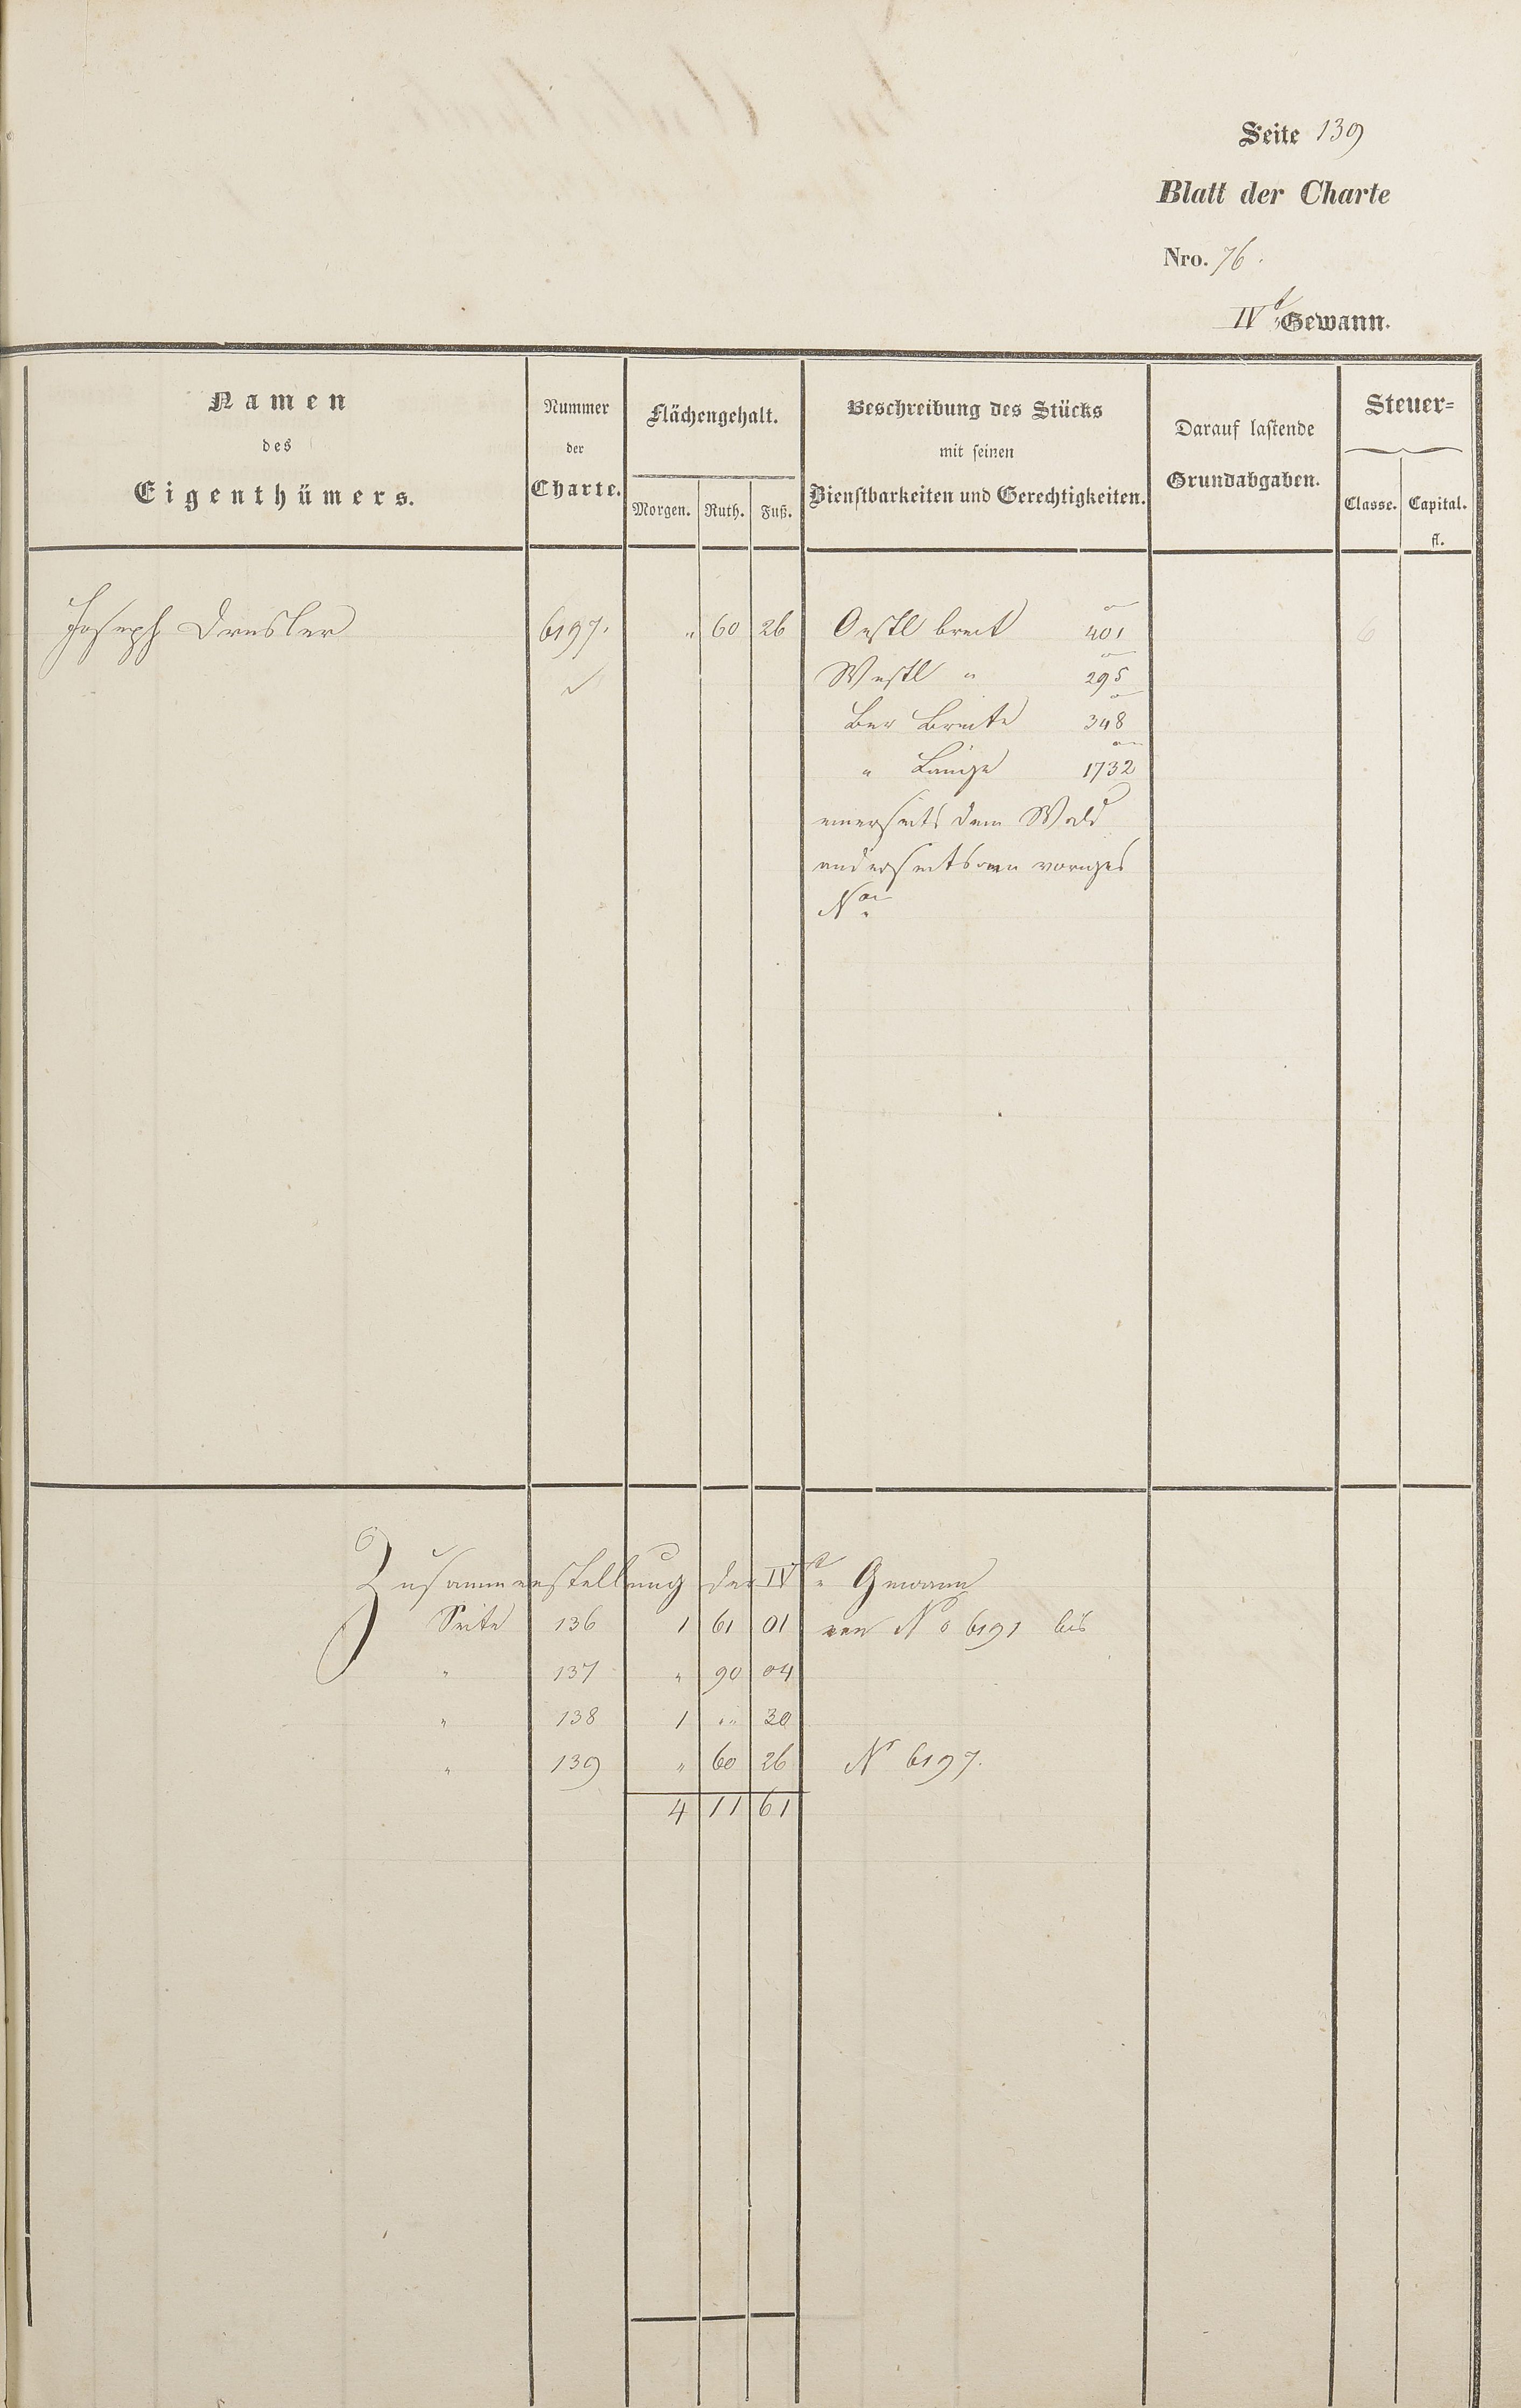 Seite 139
Blatt der Charte
Nro. 76.
IVt Gewann.
Namen des Eigenthümers.
Nummer der Charte.
Flächengehalt.
Morgen. Ruth. Fuß.
Beschreibung des Stücks mit seinen Dienstbarkeiten und Gerechtigkeiten.
Darauf lastende Grundabgaben.
Steuer=
Classe. Capital.
fl.
Joseph Dresler 6197. " 60 26 Oestl breit 401 6
Westl " 295
Ber Breite 348
" Länge 1732
einerseits dem Wald
anderseits voriges
No
Zusammenstellung der IVte Gewann
Seite 136 1 61 01 von No 6191 bis
" 137 " 90 04
" 138 1 " 30
" 139 " 60 26 N 6197.
4 11 61